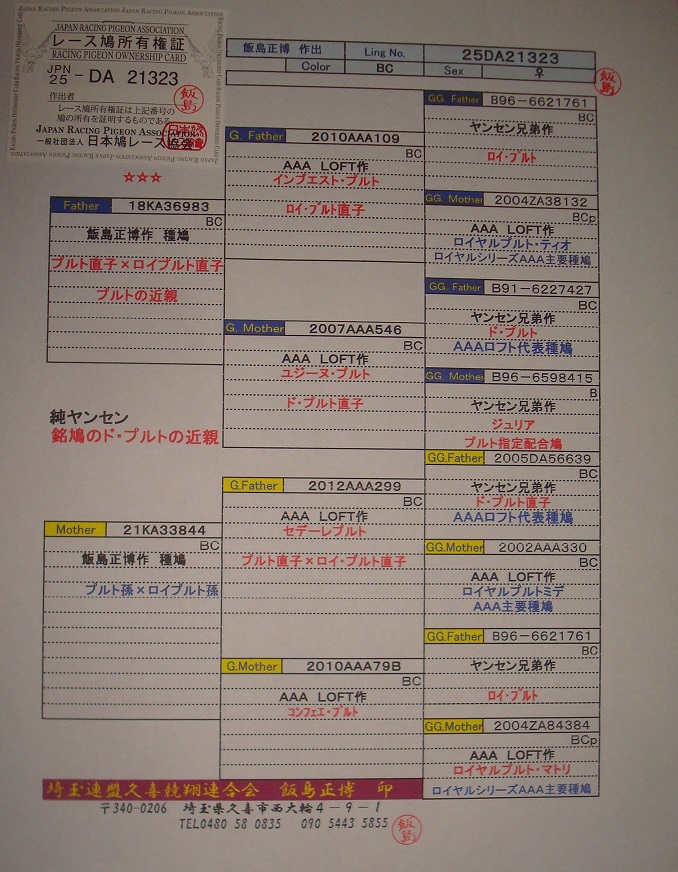 JAPAN RACING PIGEON ASSOCIATION
レース鳩所有権証
RACING PIGEON OWNERSHIP CARD
JPN
25 - DA 21323
作出者
飯島
レース鳩所有権証は上記番号の
鳩の所有を証明するものである
JAPAN RACING PIGEON ASSOCIATION
一般社団法人 日本鳩レース協会
☆☆☆
飯島正博 作出 Ling No. 25DA21323
Color BC Sex ♀
飯島
Father 18KA36983
BC
飯島正博作 種鳩
プルト直子×ロイプルト直子
プルトの近親
純ヤンセン
銘鳩のド・プルトの近親
Mother 21KA33844
BC
飯島正博作 種鳩
プルト孫×ロイプルト孫
G. Father 2010AAA109
BC
AAA LOFT作
インブエスト・プルト
ロイ・プルト直子
G. Mother 2007AAA546
BC
AAA LOFT作
ユジーヌ・プルト
ド・プルト直子
G.Father 2012AAA299
BC
AAA LOFT作
セデーレプルト
プルト直子×ロイ・プルト直子
G.Mother 2010AAA79B
BC
AAA LOFT作
コンフェエ・プルト
GG. Father B96-6621761
BC
ヤンセン兄弟作
ロイ・プルト
GG. Mother 2004ZA38132
BCp
AAA LOFT作
ロイヤルプルト・ティオ
ロイヤルシリーズAAA主要種鳩
GG. Father B91-6227427
BC
ヤンセン兄弟作
ド・プルト
AAAロフト代表種鳩
GG. Mother B96-6598415
B
ヤンセン兄弟作
ジュリア
プルト指定配合鳩
GG.Father 2005DA56639
BC
ヤンセン兄弟作
ド・プルト直子
AAAロフト代表種鳩
GG.Mother 2002AAA330
BC
AAA LOFT作
ロイヤルプルトミデ
AAA主要種鳩
GG.Father B96-6621761
BC
ヤンセン兄弟作
ロイ・プルト
GG.Mother 2004ZA84384
BCp
AAA LOFT作
ロイヤルプルト・マトリ
ロイヤルシリーズAAA主要種鳩
埼玉連盟久喜競翔連合会 飯島正博 印
〒340-0206 埼玉県久喜市西大輪4-9-1
TEL0480 58 0835 090 5443 5855
飯島